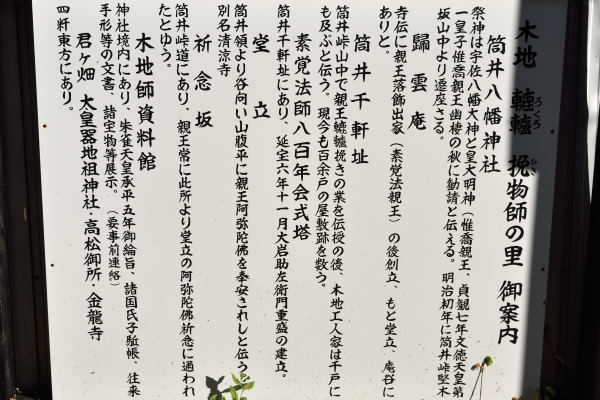 木地 轆轤 挽物師の里 御案内
ろくろ ひき
筒井八幡神社
祭神は宇佐八幡大神と皇大明神（惟喬親王、貞観七年文徳天皇第
一皇子惟喬親王幽棲の秋に勧請と伝える。明治初年に筒井峠堅木
坂山中より遷座さる。
歸雲庵
寺伝に親王落飾出家（素覚法親王）の後創立、もと堂立、庵谷に
ありと。
筒井千軒址
筒井峠山中で親王轆轤挽きの業を伝授の後、木地工人家は千戸に
も及ぶと伝う。現今も百余戸の屋敷跡を数う。
素覚法師八百年会式塔
筒井千軒址にあり、延宝六年十一月大岩助左衛門重盛の建立。
堂立
筒井領より谷向い山腹平に親王阿弥陀佛を奉安されしと伝う。
別名清涼寺
祈念坂
筒井峠道にあり、親王常に此所より堂立の阿弥陀佛祈念に通われ
たとゆう。
木地師資料館
神社境内にあり、朱雀天皇承平五年御綸旨、諸国氏子駈帳、往来
手形等の文書、諸宝物等展示。（要事前連絡）
君ヶ畑 大皇器地祖神社・高松御所・金龍寺
四粁東方にあり。